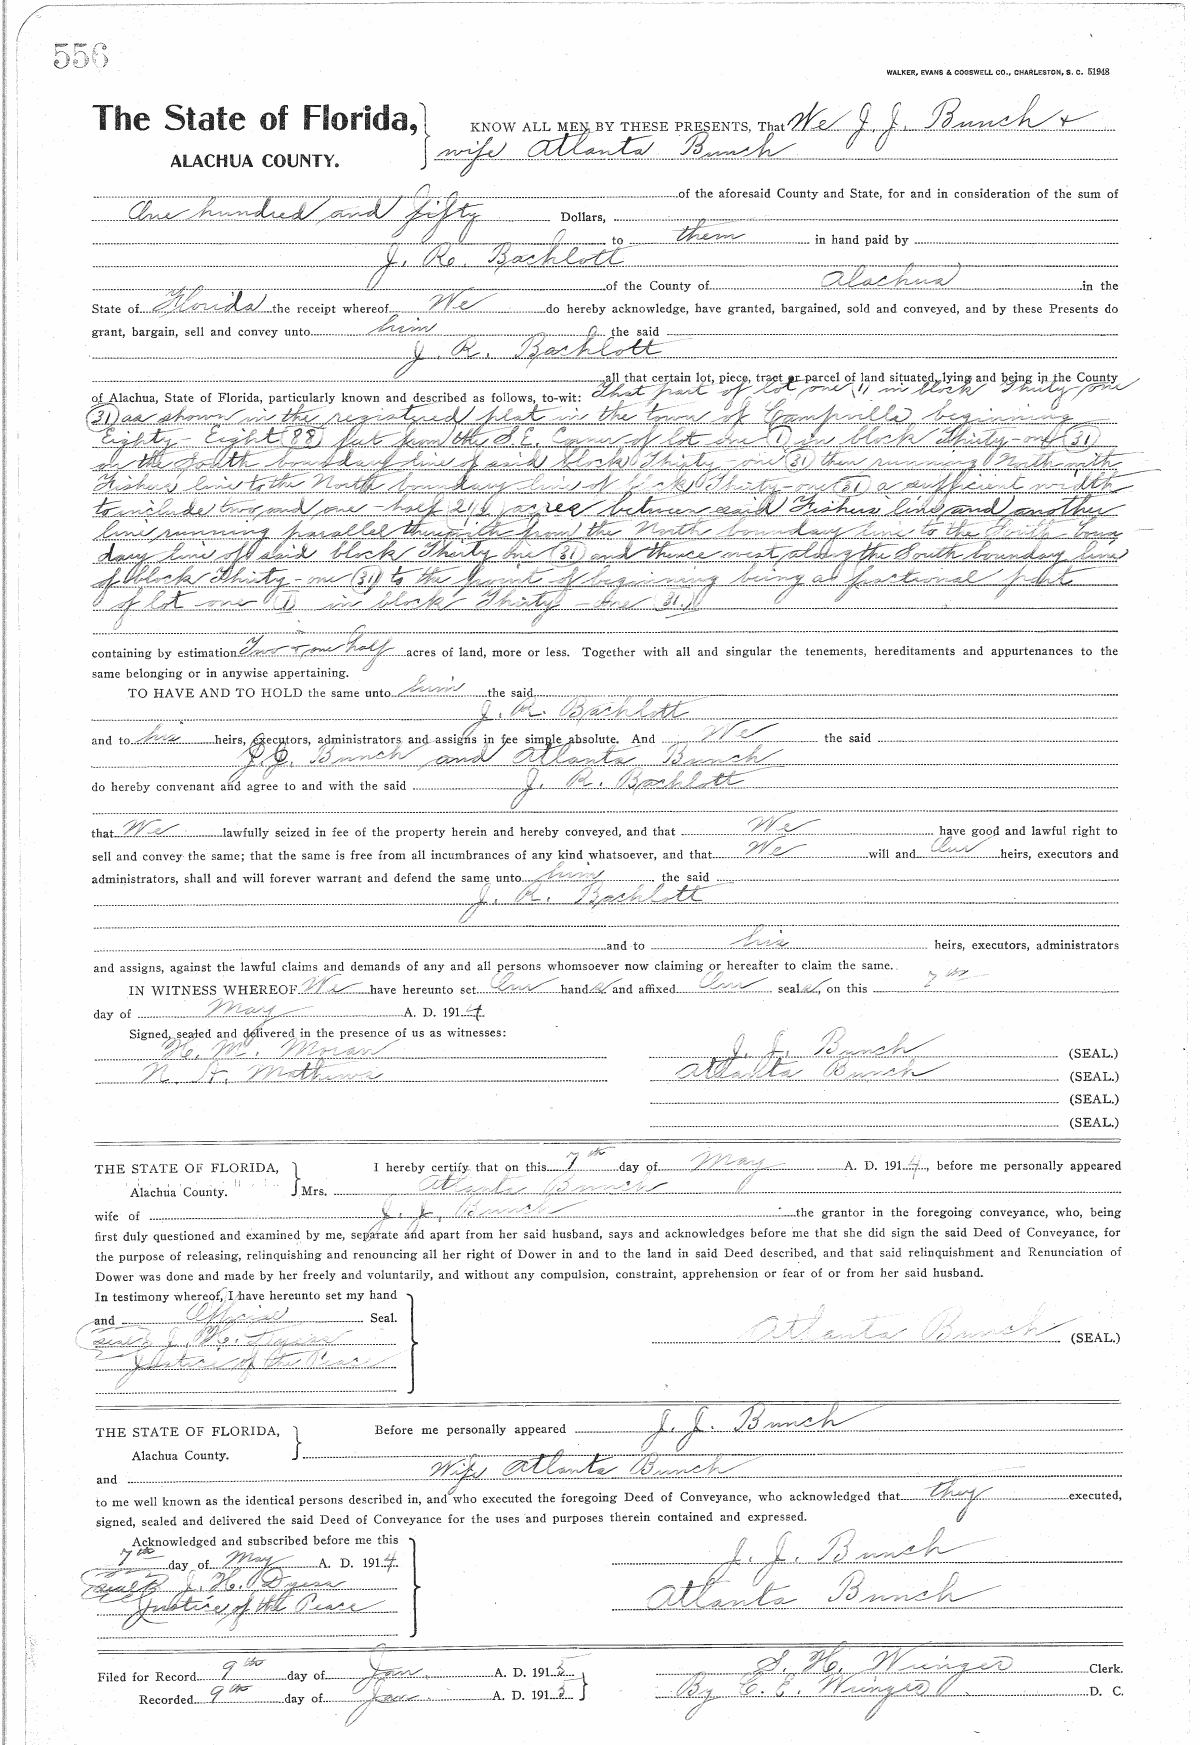 556
WALKER, EVANS & COGSWELL CO., CHARLESTON, S. C. 51948
The State of Florida,
ALACHUA COUNTY.
KNOW ALL MEN BY THESE PRESENTS, That We J. J. Bunch &
wife Atlanta Bunch
of the aforesaid County and State, for and in consideration of the sum of
One hundred and fifty Dollars,
to them in hand paid by
J. R. Bachlott
of the County of Alachua in the
State of Florida the receipt whereof We do hereby acknowledge, have granted, bargained, sold and conveyed, and by these Presents do
grant, bargain, sell and convey unto him the said
J. R. Bachlott
all that certain lot, piece, tract or parcel of land situated, lying and being in the County
of Alachua, State of Florida, particularly known and described as follows, to-wit: That part of lot one (1) in block Thirty-one
(31) as shown in the registered plat in the town of Campville beginning
Eighty-Eight (88) feet from the S.E. Corner of lot one (1) in block Thirty-one (31)
on the South boundary line of said block Thirty-one (31) then running North with
Fishers line to the North boundary line of block Thirty-one (31) a sufficient width
to include two and one-half 2½ acres between said Fishers line and another
line running parallel therewith from the North boundary line to the South boun
dary line of said block Thirty one (31) and thence west along the South boundary line
of block Thirty-one (31) to the point of beginning being a fractional part
of lot one (1) in block Thirty-one (31.)
containing by estimation Two & one half acres of land, more or less. Together with all and singular the tenements, hereditaments and appurtenances to the
same belonging or in anywise appertaining.
TO HAVE AND TO HOLD the same unto him the said
J. R. Bachlott
and to his heirs, executors, administrators and assigns in fee simple absolute. And We the said
J. J. Bunch and Atlanta Bunch
do hereby convenant and agree to and with the said J. R. Bachlott
that We lawfully seized in fee of the property herein and hereby conveyed, and that We have good and lawful right to
sell and convey the same; that the same is free from all incumbrances of any kind whatsoever, and that We will and Our heirs, executors and
administrators, shall and will forever warrant and defend the same unto him the said
J. R. Bachlott
and to his heirs, executors, administrators
and assigns, against the lawful claims and demands of any and all persons whomsoever now claiming or hereafter to claim the same.
IN WITNESS WHEREOF We have hereunto set Our hands and affixed Our seals, on this 7th
day of May A. D. 1914
Signed, sealed and delivered in the presence of us as witnesses:
H. M. Moran
N. A. Mathews
J. J. Bunch (SEAL.)
Atlanta Bunch (SEAL.)
(SEAL.)
(SEAL.)
THE STATE OF FLORIDA,
Alachua County.
I hereby certify that on this 7th day of May A. D. 1914, before me personally appeared
Mrs. Atlanta Bunch
wife of J. J. Bunch the grantor in the foregoing conveyance, who, being
first duly questioned and examined by me, separate and apart from her said husband, says and acknowledges before me that she did sign the said Deed of Conveyance, for
the purpose of releasing, relinquishing and renouncing all her right of Dower in and to the land in said Deed described, and that said relinquishment and Renunciation of
Dower was done and made by her freely and voluntarily, and without any compulsion, constraint, apprehension or fear of or from her said husband.
In testimony whereof, I have hereunto set my hand
and Official Seal.
(Seal) J. H. Dyess
Justice of the Peace
Atlanta Bunch (SEAL.)
THE STATE OF FLORIDA,
Alachua County.
Before me personally appeared J. J. Bunch
and Wife Atlanta Bunch
to me well known as the identical persons described in, and who executed the foregoing Deed of Conveyance, who acknowledged that they executed,
signed, sealed and delivered the said Deed of Conveyance for the uses and purposes therein contained and expressed.
Acknowledged and subscribed before me this
7th day of May A. D. 1914
(Seal) J. H. Dyess
Justice of the Peace
J. J. Bunch
Atlanta Bunch
Filed for Record 9th day of Jan. A. D. 1915
Recorded 9th day of Jan. A. D. 1915
S. H. Wienges Clerk.
By C. E. Wienges D. C.